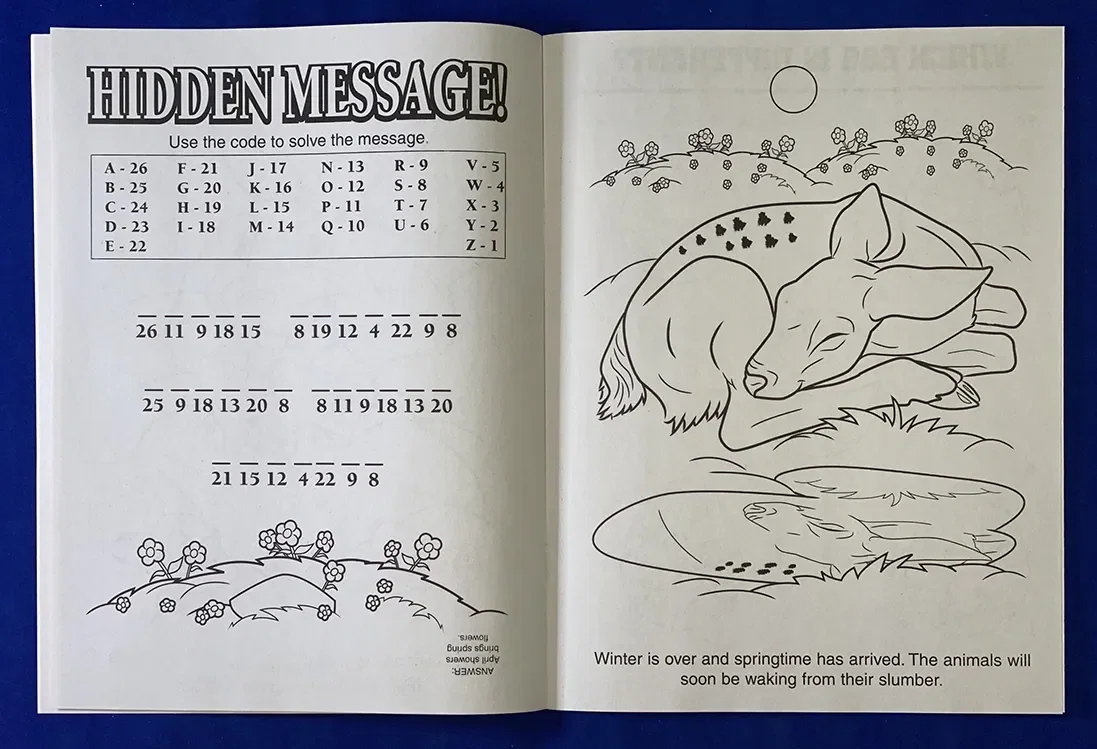 HIDDEN MESSAGE!
Use the code to solve the message.
A - 26 F - 21 J - 17 N - 13 R - 9 V - 5
B - 25 G - 20 K - 16 O - 12 S - 8 W - 4
C - 24 H - 19 L - 15 P - 11 T - 7 X - 3
D - 23 I - 18 M - 14 Q - 10 U - 6 Y - 2
E - 22 Z - 1
26 11 9 18 15 8 19 12 4 22 9 8
25 9 18 13 20 8 8 11 9 18 13 20
21 15 12 4 22 9 8
ANSWER:
April showers
brings spring
flowers.
WHICH EGG IS DIFFERENT?
Winter is over and springtime has arrived. The animals will
soon be waking from their slumber.